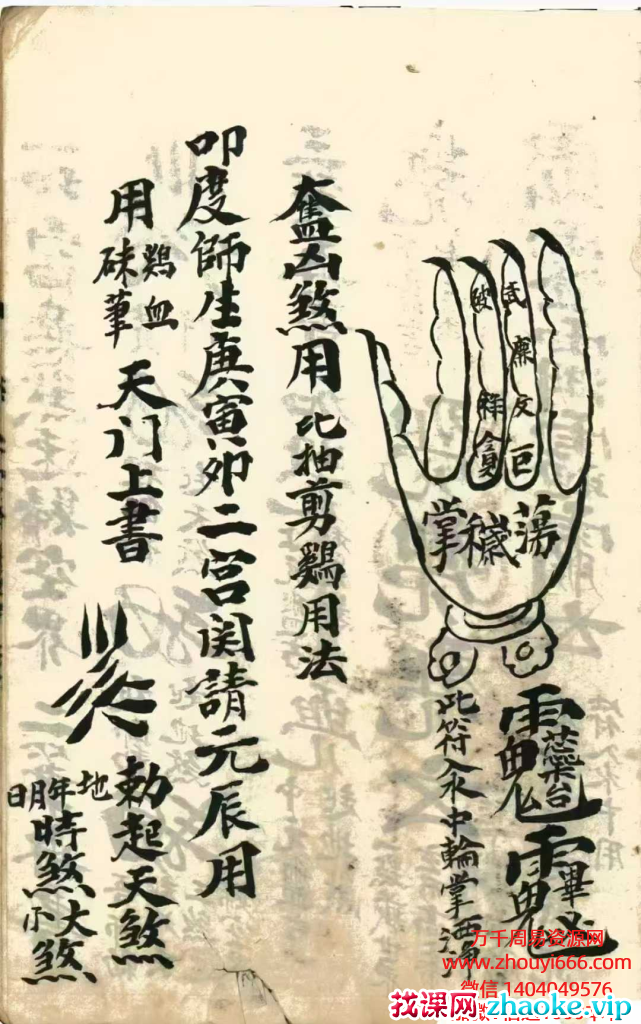 武廉文巨
破祿貪
蕩穢掌
此符入水中輪掌洒淨
凶煞用
比抽剪鷄用法
叩度師生庚寅卯二宮関請元辰用
用鷄血硃筆天门上書
勅起天煞
地年月日時煞大小煞
万千周易资源网
www.zhouyi666.com
微信 1404049576
找课网zhaoke.vip